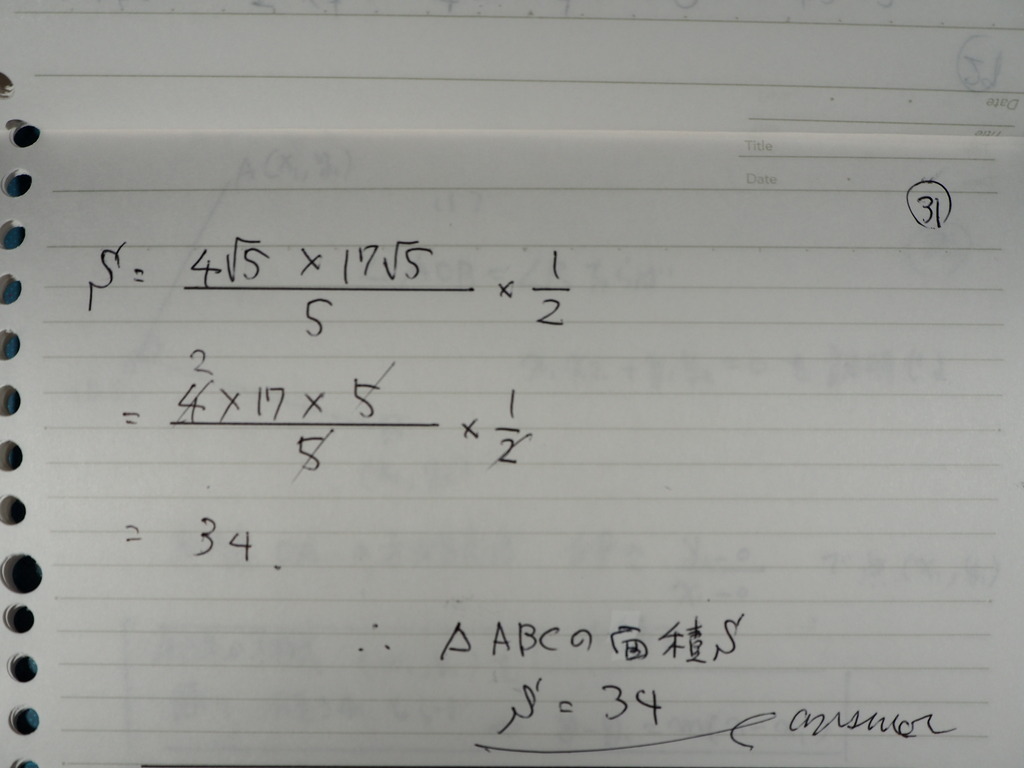 Title
Date
㉛
S = 4√5 × 17√5 / 5 × 1/2
= 4 2 × 17 × 5 / 5 × 1/2
= 34.
∴ △ABCの面積S
S = 34 answer